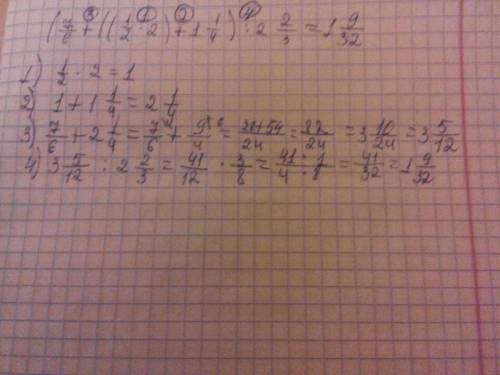 (7/6 + ((1/2 · 2) + 1 1/4) : 2 2/3 = 1 9/32
1) 1/2 · 2 = 1
2) 1 + 1 1/4 = 2 1/4
3) 7/6 + 2 1/4 = 7/6 + 9/4 = 28+54/24 = 82/24 = 3 10/24 = 3 5/12
4) 3 5/12 : 2 2/3 = 41/12 · 3/8 = 41/4 · 1/8 = 41/32 = 1 9/32